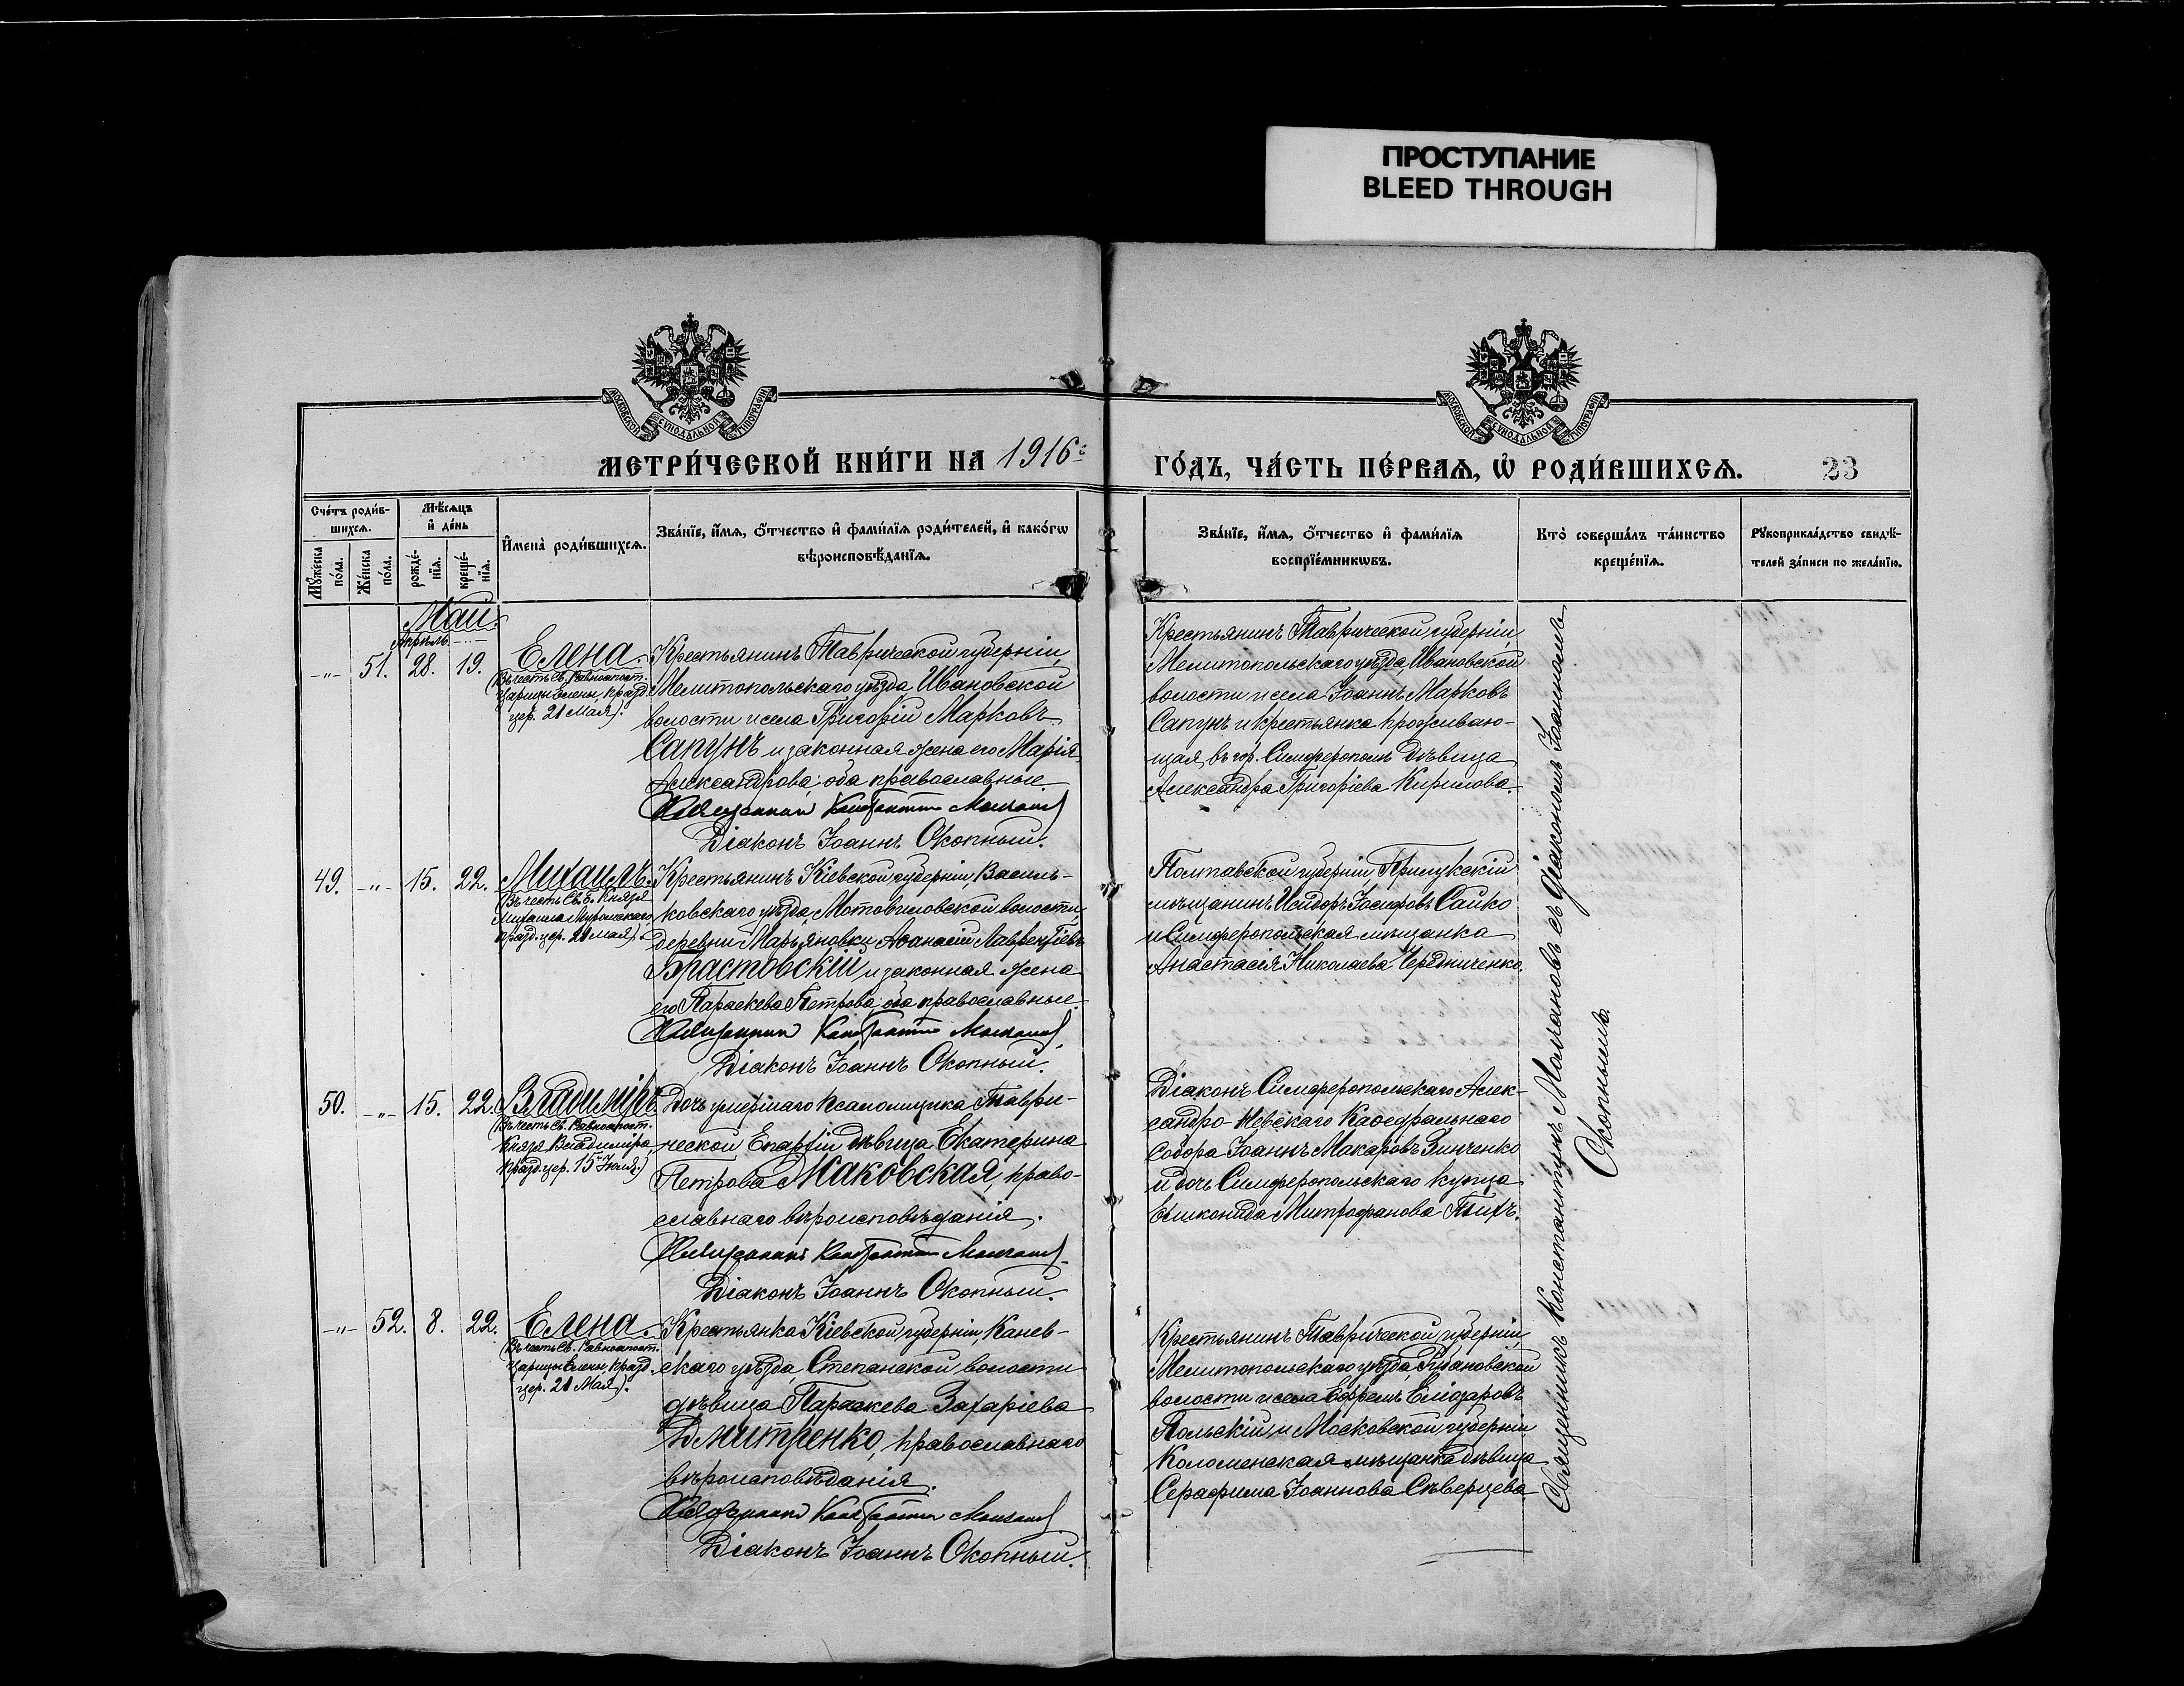 ПРОСТУПАНИЕ
BLEED THROUGH
МОСКОВСКОЙ СѴНОДАЛЬНОЙ ТИПОГРАФІИ
МОСКОВСКОЙ СѴНОДАЛЬНОЙ ТИПОГРАФІИ
МЕТРИ́ЧЕСКОЙ КНИ́ГИ НА 1916 г.
ГО́ДЪ, ЧА́СТЬ ПЕ́РВАЯ, Ѡ҆ РОДИ́ВШИХСЯ.
23
Сче́тъ роди́в-
шихся.
Мѣ́сяцъ
и҆ де́нь
Мꙋ́жеска
по́ла.
Же́нска
по́ла.
рожде́-
нїя.
креще́-
нїя.
И҆мена̀ роди́вшихся.
Зва́нїе, и҆́мя, ѻ҆́тчество и҆ фами́лїя роди́телей, и҆ како́гѡ
вѣроисповѣ́данїя.
Зва́нїе, и҆́мя, ѻ҆́тчество и҆ фами́лїя
воспрїе́мникѡвъ.
Кто̀ соверша́лъ та́инство
креще́нїя.
Рꙋкоприкла́дство свидѣ́-
телей за́писи по жела́нїю.
Май.
Апрѣль -"-
-"- 51. 28. 19.
Елена.
(Въ честь Св. Равноапост.
Царицы Елены, празд.
цер. 21 Мая).
Крестьянинъ Таврической губерніи,
Мелитопольскаго уѣзда, Ивановской
волости и села Григорій Марковъ
Сапунъ и законная жена его Марія
Александрова; оба православные.
Священникъ Константинъ
Діаконъ Іоаннъ Окопный.
Крестьянинъ Таврической губерніи,
Мелитопольскаго уѣзда, Ивановской
волости и села Іоаннъ Марковъ
Сапунъ и крестьянка проживаю-
щая въ гор. Симферополѣ дѣвица
Александра Григоріева Кирилова.
49. -"- 15. 22.
Михаилъ.
(Въ честь Св. Б. Князя
Михаила Муромскаго
празд. цер. 21 мая).
Крестьянинъ Кіевской губерніи, Василь-
ковскаго уѣзда, Мотовиловской волости,
деревни Марьяновки Аѳанасій Лаврентіевъ
Брастовскій и законная жена
его Параскева Петрова; оба православные.
Священникъ Константинъ
Діаконъ Іоаннъ Окопный.
Полтавской губерніи, Прилукскій
мѣщанинъ Исидоръ Іосифовъ Сайко
и Симферопольская мѣщанка
Анастасія Николаева Чередниченко.
50. -"- 15. 22.
Владиміръ
(Въ честь Св. Равноапост.
Князя Владиміра,
празд. цер. 15 Іюля.)
Дочь умершаго псаломщика Таври-
ческой Епархіи дѣвица Екатерина
Петрова Маковская, право-
славнаго вѣроисповѣданія.
Священникъ Константинъ
Діаконъ Іоаннъ Окопный.
Діаконъ Симферопольскаго Алек-
сандро-Невскаго Каѳедральнаго
Собора Іоаннъ Макаровъ Зинченко
и дочь Симферопольскаго купца
Еликонида Митрофанова
-"- 52. 8. 22.
Елена.
(Въ честь Св. Равноапост.
Царицы Елены, празд.
цер. 21 Мая).
Крестьянка Кіевской губерніи, Канев-
скаго уѣзда, Степанской волости
дѣвица Параскева Захаріева
Дмитренко, православнаго
вѣроисповѣданія.
Священникъ Константинъ
Діаконъ Іоаннъ Окопный.
Крестьянинъ Таврической губерніи,
Мелитопольскаго уѣзда,
волости и села Ефремъ Еліазаровъ
Польскій и Московской губерніи
Коломенская мѣщанка дѣвица
Серафима Іоаннова Скверцева.
Священникъ Константинъ съ діакономъ Іоанномъ
Окопнымъ.